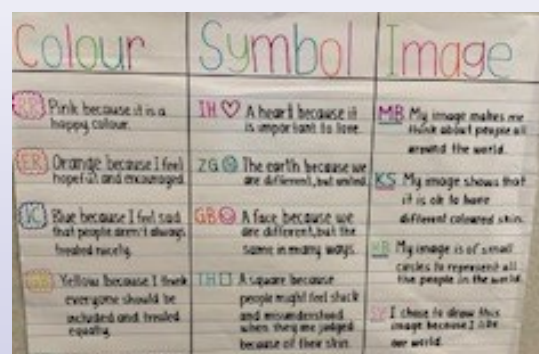 Colour
Pink because it is a
happy colour.
ER Orange because I feel
hopeful and encouraged.
Blue because I feel sad
that people aren't always
treated nicely.
Yellow because I think
everyone should be
included and treated
equally.
Symbol
IH A heart because it
is important to love.
ZG The earth because we
are different, but united.
GB A face because we
are different, but the
same in many ways.
TH A square because
people might feel stuck
and misunderstood
when they are judged
because of their skin.
Image
MB My image makes me
think about people all
around the world.
KS My image shows that
it is ok to have
different coloured skin.
My image is of small
circles to represent all
the people in the world.
I chose to draw this
image because I
our world.